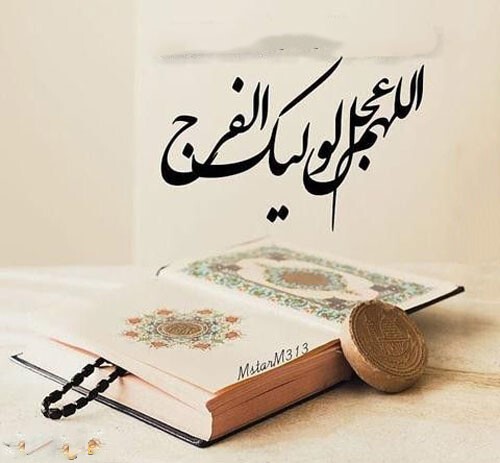 اللهم عجل لولیک الفرج
MstarM313